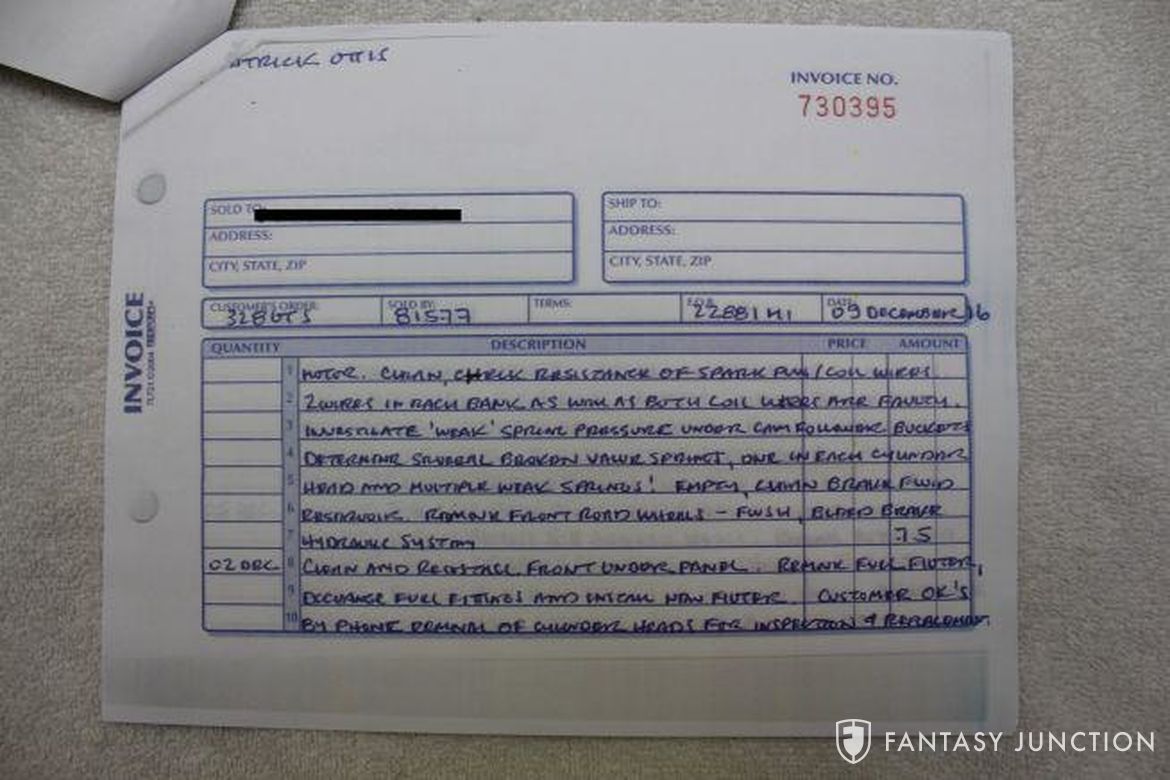 ATRICK OTTIS
INVOICE NO.
730395
SOLD TO:
ADDRESS:
CITY, STATE, ZIP
SHIP TO:
ADDRESS:
CITY, STATE, ZIP
CUSTOMER'S ORDER: SOLD BY: TERMS: F.O.B. DATE:
328GTS 81577 22881 MI 09 DECEMBER 16
INVOICE
QUANTITY DESCRIPTION PRICE AMOUNT
1 MOTOR. CLEAN, CHECK RESISTANCE OF SPARK PLUG/COIL WIRES.
2 2 WIRES IN EACH BANK AS WELL AS BOTH COIL WIRES ARE FAULTY.
3 INVESTIGATE 'WEAK' SPRING PRESSURE UNDER CAM FOLLOWER BUCKETS
4 DETERMINE SEVERAL BROKEN VALVE SPRINGS, ONE IN EACH CYLINDER
5 HEAD AND MULTIPLE WEAK SPRINGS! EMPTY, CLEAN BRAKE FLUID
6 RESERVOIR. REMOVE FRONT ROAD WHEELS - FLUSH, BLEED BRAKE
7 HYDRAULIC SYSTEM 7.5
02 DEC 8 CLEAN AND REINSTALL FRONT UNDER PANEL. REMOVE FUEL FILTER,
9 EXCHANGE FUEL FITTINGS AND INSTALL NEW FILTER. CUSTOMER OK'S
10 BY PHONE REMOVAL OF CYLINDER HEADS FOR INSPECTION &
FANTASY JUNCTION